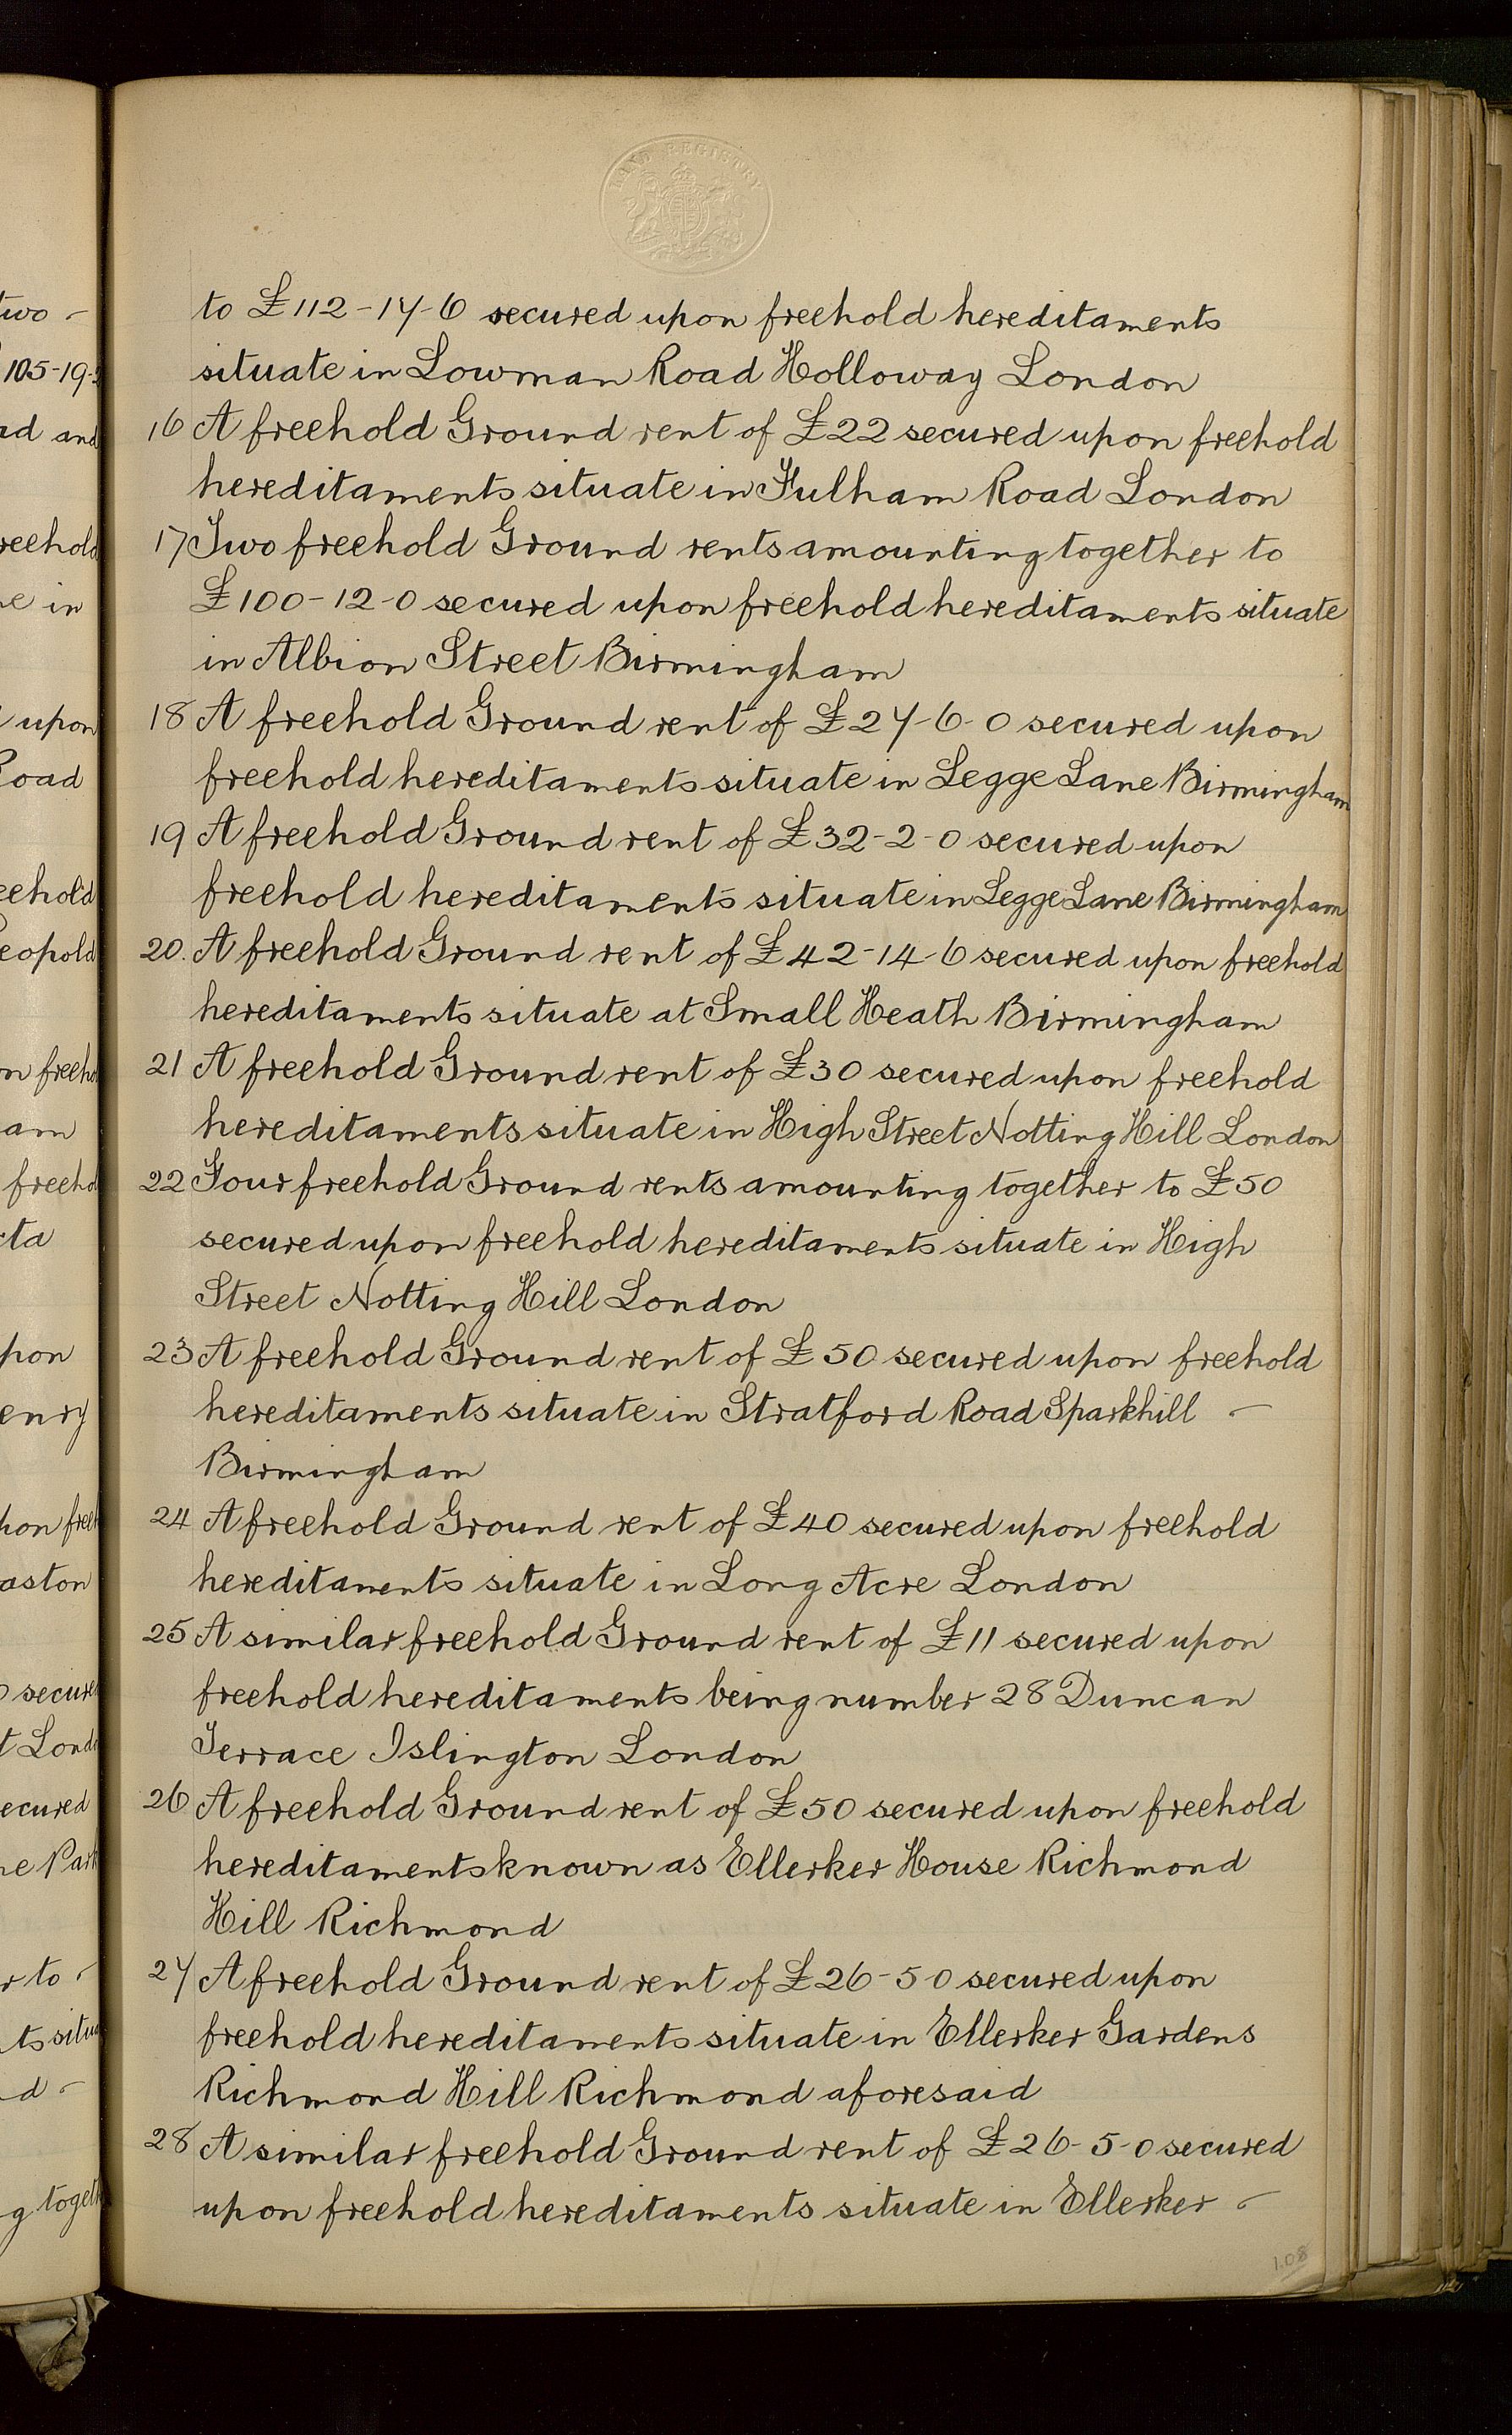 LAND REGISTRY
to £112-17-6 secured upon freehold hereditaments
situate in Lowman Road Holloway London
16 A freehold Ground rent of £22 secured upon freehold
hereditaments situate in Fulham Road London
17 Two freehold Ground rents amounting together to
£100-12-0 secured upon freehold hereditaments situate
in Albion Street Birmingham
18 A freehold Ground rent of £27-6-0 secured upon
freehold hereditaments situate in Legge Lane Birmingham
19 A freehold Ground rent of £32-2-0 secured upon
freehold hereditaments situate in Legge Lane Birmingham
20. A freehold Ground rent of £42-14-6 secured upon freehold
hereditaments situate at Small Heath Birmingham
21 A freehold Ground rent of £30 secured upon freehold
hereditaments situate in High Street Notting Hill London
22 Four freehold Ground rents amounting together to £50
secured upon freehold hereditaments situate in High
Street Notting Hill London
23 A freehold Ground rent of £50 secured upon freehold
hereditaments situate in Stratford Road Sparkhill -
Birmingham
24 A freehold Ground rent of £40 secured upon freehold
hereditaments situate in Long Acre London
25 A similar freehold Ground rent of £11 secured upon
freehold hereditaments being number 28 Duncan
Terrace Islington London
26 A freehold Ground rent of £50 secured upon freehold
hereditaments known as Ellerker House Richmond
Hill Richmond
27 A freehold Ground rent of £26-5-0 secured upon
freehold hereditaments situate in Ellerker Gardens
Richmond Hill Richmond aforesaid
28 A similar freehold Ground rent of £26-5-0 secured
upon freehold hereditaments situate in Ellerker -
108